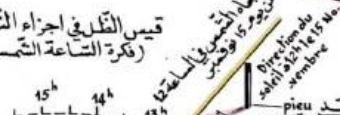 قيس الظل في اجزاء
(فكرة الساعة الشمس
في الساعة 12
من يوم 15 نوفمبر
Direction du
soleil à 12h le 15 No-
vembre
15h
14h
13h
pieu